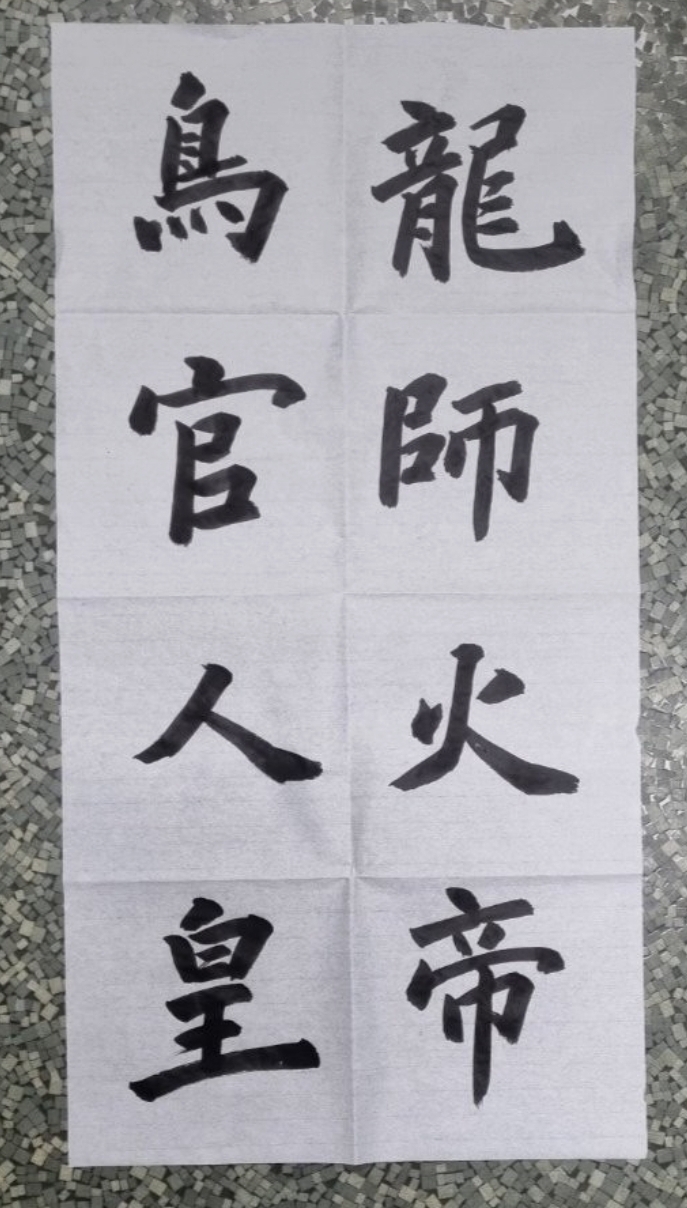 龍師火帝
鳥官人皇